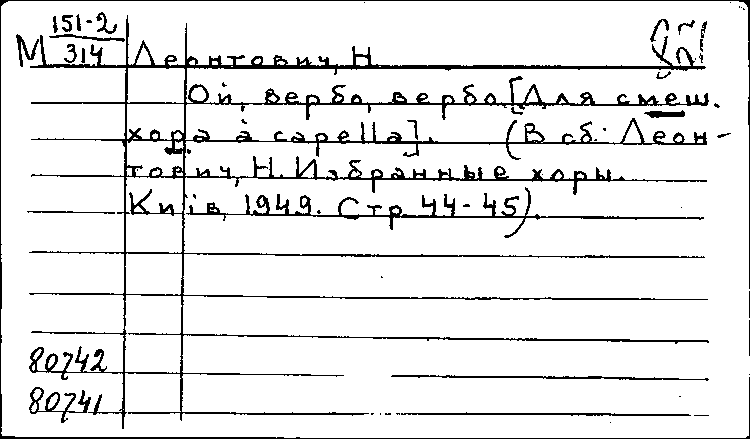 М 151-2
314
Леонтович, Н
Ой, вербо, вербо. [Для смеш.
хора à capella]. (В сб: Леон-
тович, Н. Избранные хоры.
Київ, 1949. Стр. 44-45).
80742
80741